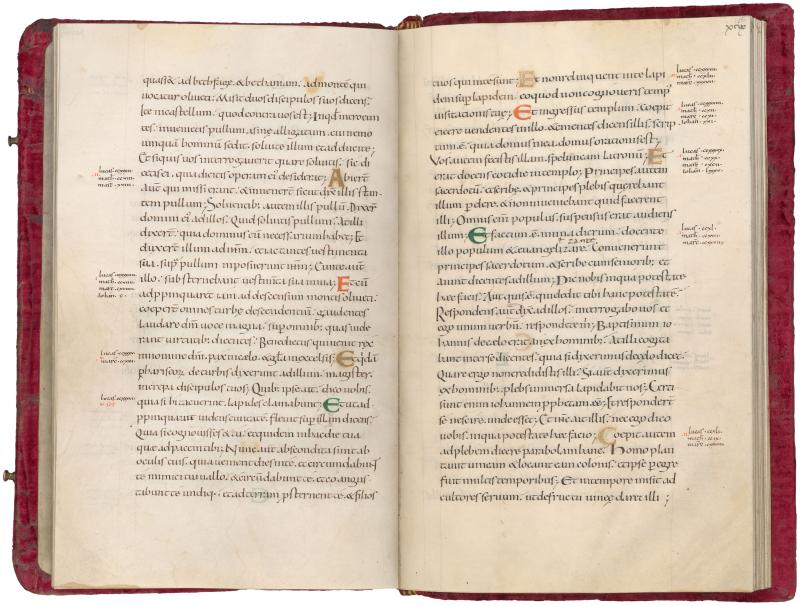 quasset ad bethfage & bethaniam. ad montem qui
uocatur oliueti. Misit duos discipulos suos dicens.
Ite in castellum. quod contra uos est; In quod introeun
tes. inuenietis pullum asinę alligatum. cui nemo
umquam hominum sedit. soluite illum et adducite;
Et siquis uos interrogauerit quare soluitis. sic di
cetis ei. quia dñs operam eí desiderat; Abierunt
autē qui missi erant. & inuenerunt sicut dixit illis stan
tem pullum; Soluentibus autem illis pullū. Dixerunt
domini eí ad illos. Quid soluitis pullum. At illi
dixerunt. quia dominus eū necessarium habet; Et
duxerunt illum ad ihm. et iactantes uestimenta
sua. supra pullum imposuerunt ihm; Eunte autē
illo. substernebant uestimta sua in uia; Et cū
adpropinquaret iam ad descensum montis oliueti.
coeperunt omnes turbę descendentiū. gaudentes
laudare dm̄ uoce magna. super omnib; quas uide
rant uirtutib; dicentes. Benedictus qui uenit rex
in nomine dni. pax in cęlo. & gła in excelsis; Et quidā
pharisęor. de turbis dixerunt ad illum. magister.
increpa discipulos tuos; Quib; ipse ait. dico uobis.
quia si hi tacuerint. lapides clamabunt; Et ut ad
propinquauit. uidens ciuitatē. fleuit sup illam dicens.
Quia si cognouisses & tu. et quidem in hac die tua
quę ad pacem tibi; Nunc autē abscondita sunt ab
oculis tuis. quia uenient dies in te. et circumdabunt
te inimici tui uallo. & circūdabunt te. et coangus
tabunt te undiq; et ad terram psternent te. & filios
lucas
math
marc
lucas
math
marc
iohan
lucas
marc
lucas
tuos qui in te sunt; Et non relinquent in te lapi
dem sup lapidem. eo quod non cognoueris temp
uisitationis tuę; Et ingressus templum. & coepit
eicere uendentes in illo. & ementes dicens illis. scrip
tum ē. quia domus mea. domus orationis est;
Vos autem fecistis illam. speluncam latronū; Et
erat docens cotidie in templo; Principes autem
sacerdotū. & scribę. & principes plebis querebant
illum pdere. & non inueniebant quid facerent
illi; Omnis enī populus. suspensus erat audiens
illum; Et factum ē. in una dierum. docente
illo populum & euangelizare. Conuenerunt
zante
principes sacerdotum. & scribę cum seniorib; et
aiunt dicentes. ad illum; Dic nobis in qua potestate
hęc facis. Aut quis ē. qui dedit tibi hanc potestatē.
Respondens. autē dix ad illos. interrogabo uos et
ego unum uerbū. respondete mi; Baptismum io
hannis. de cęlo erat. an ex hominib; At illi cogita
bant inter se dicentes. quia si dixerimus de cęlo. dicet.
Quare ergo non credidistis illi. Si autē dixerimus
ex hominib; plebs uniuersa lapidabit nos; Certi
sunt enim iohannem pphetam eē; Et responderunt
se nescire unde esset; Et ihs ait illis. nec ego dico
uobis. in qua potestate hęc facio; Coepit autem
ad plebem dicere parabolam hanc. Homo plan
tauit uineam. & locauit eam colonis. et ipse pegre
fuit multis temporibus; Et in tempore misit ad
cultores seruum. ut de fructu uineę darent illi;
lucas
math
marc
lucas
math
marc
iohan
lucas
math
iohan
lucas
math
marc
lucas
math
marc